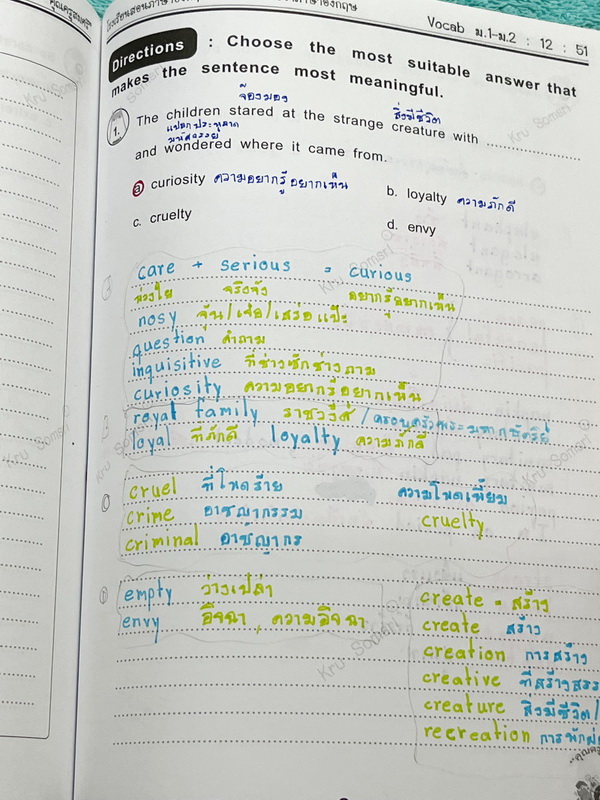 Vocab ม.1-ม.2 : 12 : 51
Directions : Choose the most suitable answer that
makes the sentence most meaningful.
จ้องมอง สิ่งมีชีวิต
1. The children stared at the strange creature with
แปลกประหลาด
มหัศจรรย์
and wondered where it came from.
a curiosity ความอยากรู้อยากเห็น b. loyalty ความภักดี
c. cruelty d. envy
care + serious = curious
ห่วงใย จริงจัง อยากรู้อยากเห็น
nosy จุ้น/เจ๋อ/เสร่อแป๊ะ
question คำถาม
inquisitive ที่ช่างซักช่างถาม
curiosity ความอยากรู้อยากเห็น
royal family ราชวงศ์ /ครอบครัวพระมหากษัตริย์
loyal ที่ภักดี loyalty ความภักดี
cruel ที่โหดร้าย ความโหดเหี้ยม
crime อาชญากรรม cruelty
criminal อาชญากร
empty ว่างเปล่า create = สร้าง
envy อิจฉา , ความอิจฉา create สร้าง
creation การสร้าง
creative ที่สร้างสรร
creature สิ่งมีชีวิต/
recreation
Kru Somsri
Kru Somsri
Kru Somsri
Kru Somsri